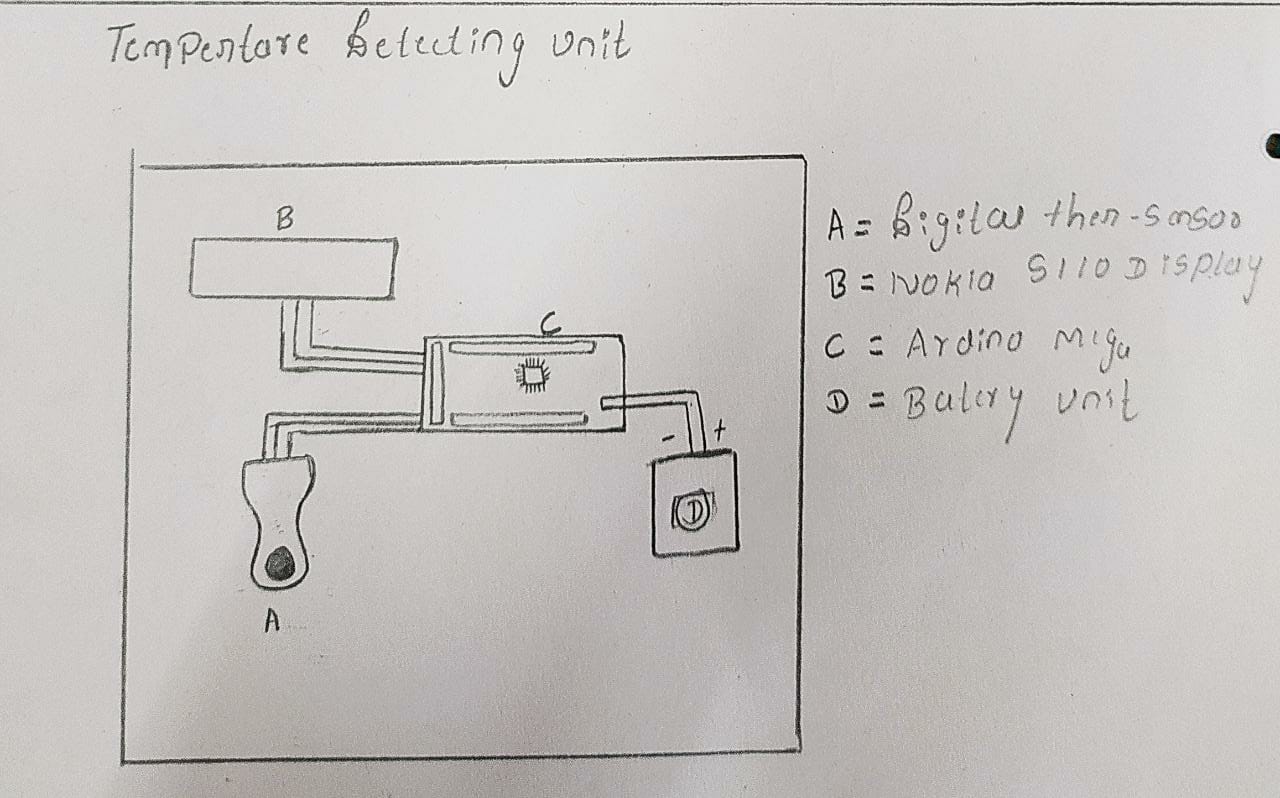 Tempertare Detecting unit
B
C
A = Digital ther-sensor
B = NOKIA 5110 Display
C = Ardino mega
D = Batery unit
- +
D
A